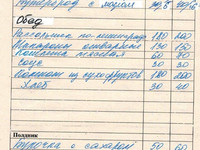 Бутерброд с маслом
Обед
Рассольник по-ленинград. 180 200
Макароны отварные 130 150
Котлета мясная 60 70
Соус 30 30
Компот из сухофруктов 180 200
Хлеб 30 40
Полдник
Булочка с сахаром 50 60